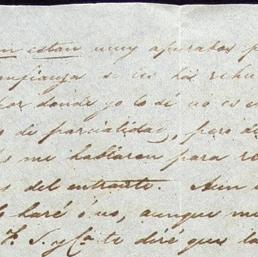 estan muy apurados p
confianza se les ha rehu
por donde yo lo dé no es
de parcialidad, pero
me hablaron para re
del entrante. Aun
lo haré ó no, aunque me
F. S. y Cª te diré que la